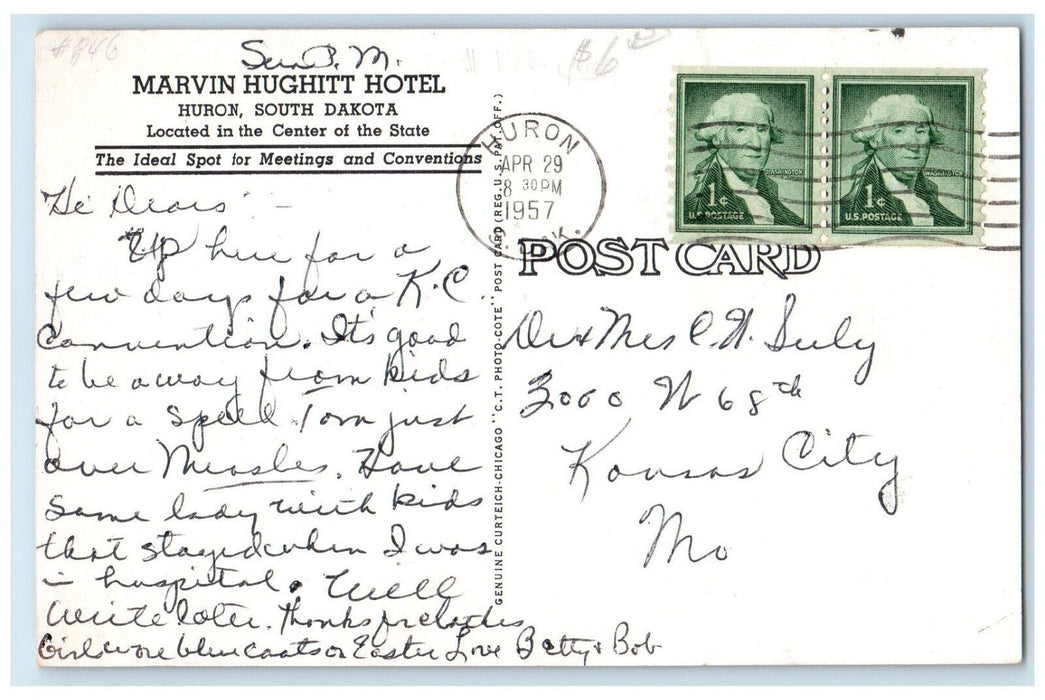 #846
$6
Sun P.M.
MARVIN HUGHITT HOTEL
HURON, SOUTH DAKOTA
Located in the Center of the State
The Ideal Spot for Meetings and Conventions
Hi Dears -
Up here for a
few days for a K.C.
Convention. It's good
to be away from kids
for a spell. Tom just
over Measles. Have
same lady with kids
that stayed when I was
in hospital. Will
write later. Thanks for clothes
Girls wore blue coats on Easter Love Betty & Bob
GENUINE CURTEICH-CHICAGO "C.T. PHOTO-COTE" POST CARD (REG. U.S. PAT. OFF.)
HURON
APR 29
8 30 PM
1957
DAK.
WASHINGTON
1¢
U.S. POSTAGE
WASHINGTON
1¢
U.S. POSTAGE
POST CARD
Dr & Mrs C. N.
3000 W 68th
Kansas City
Mo